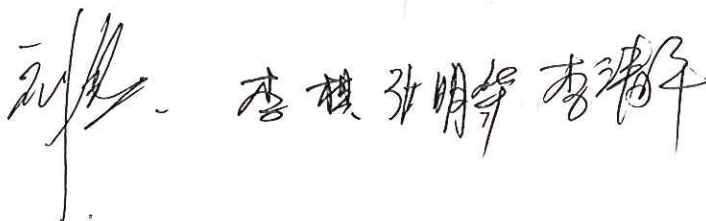 李棋 张明华 李清平